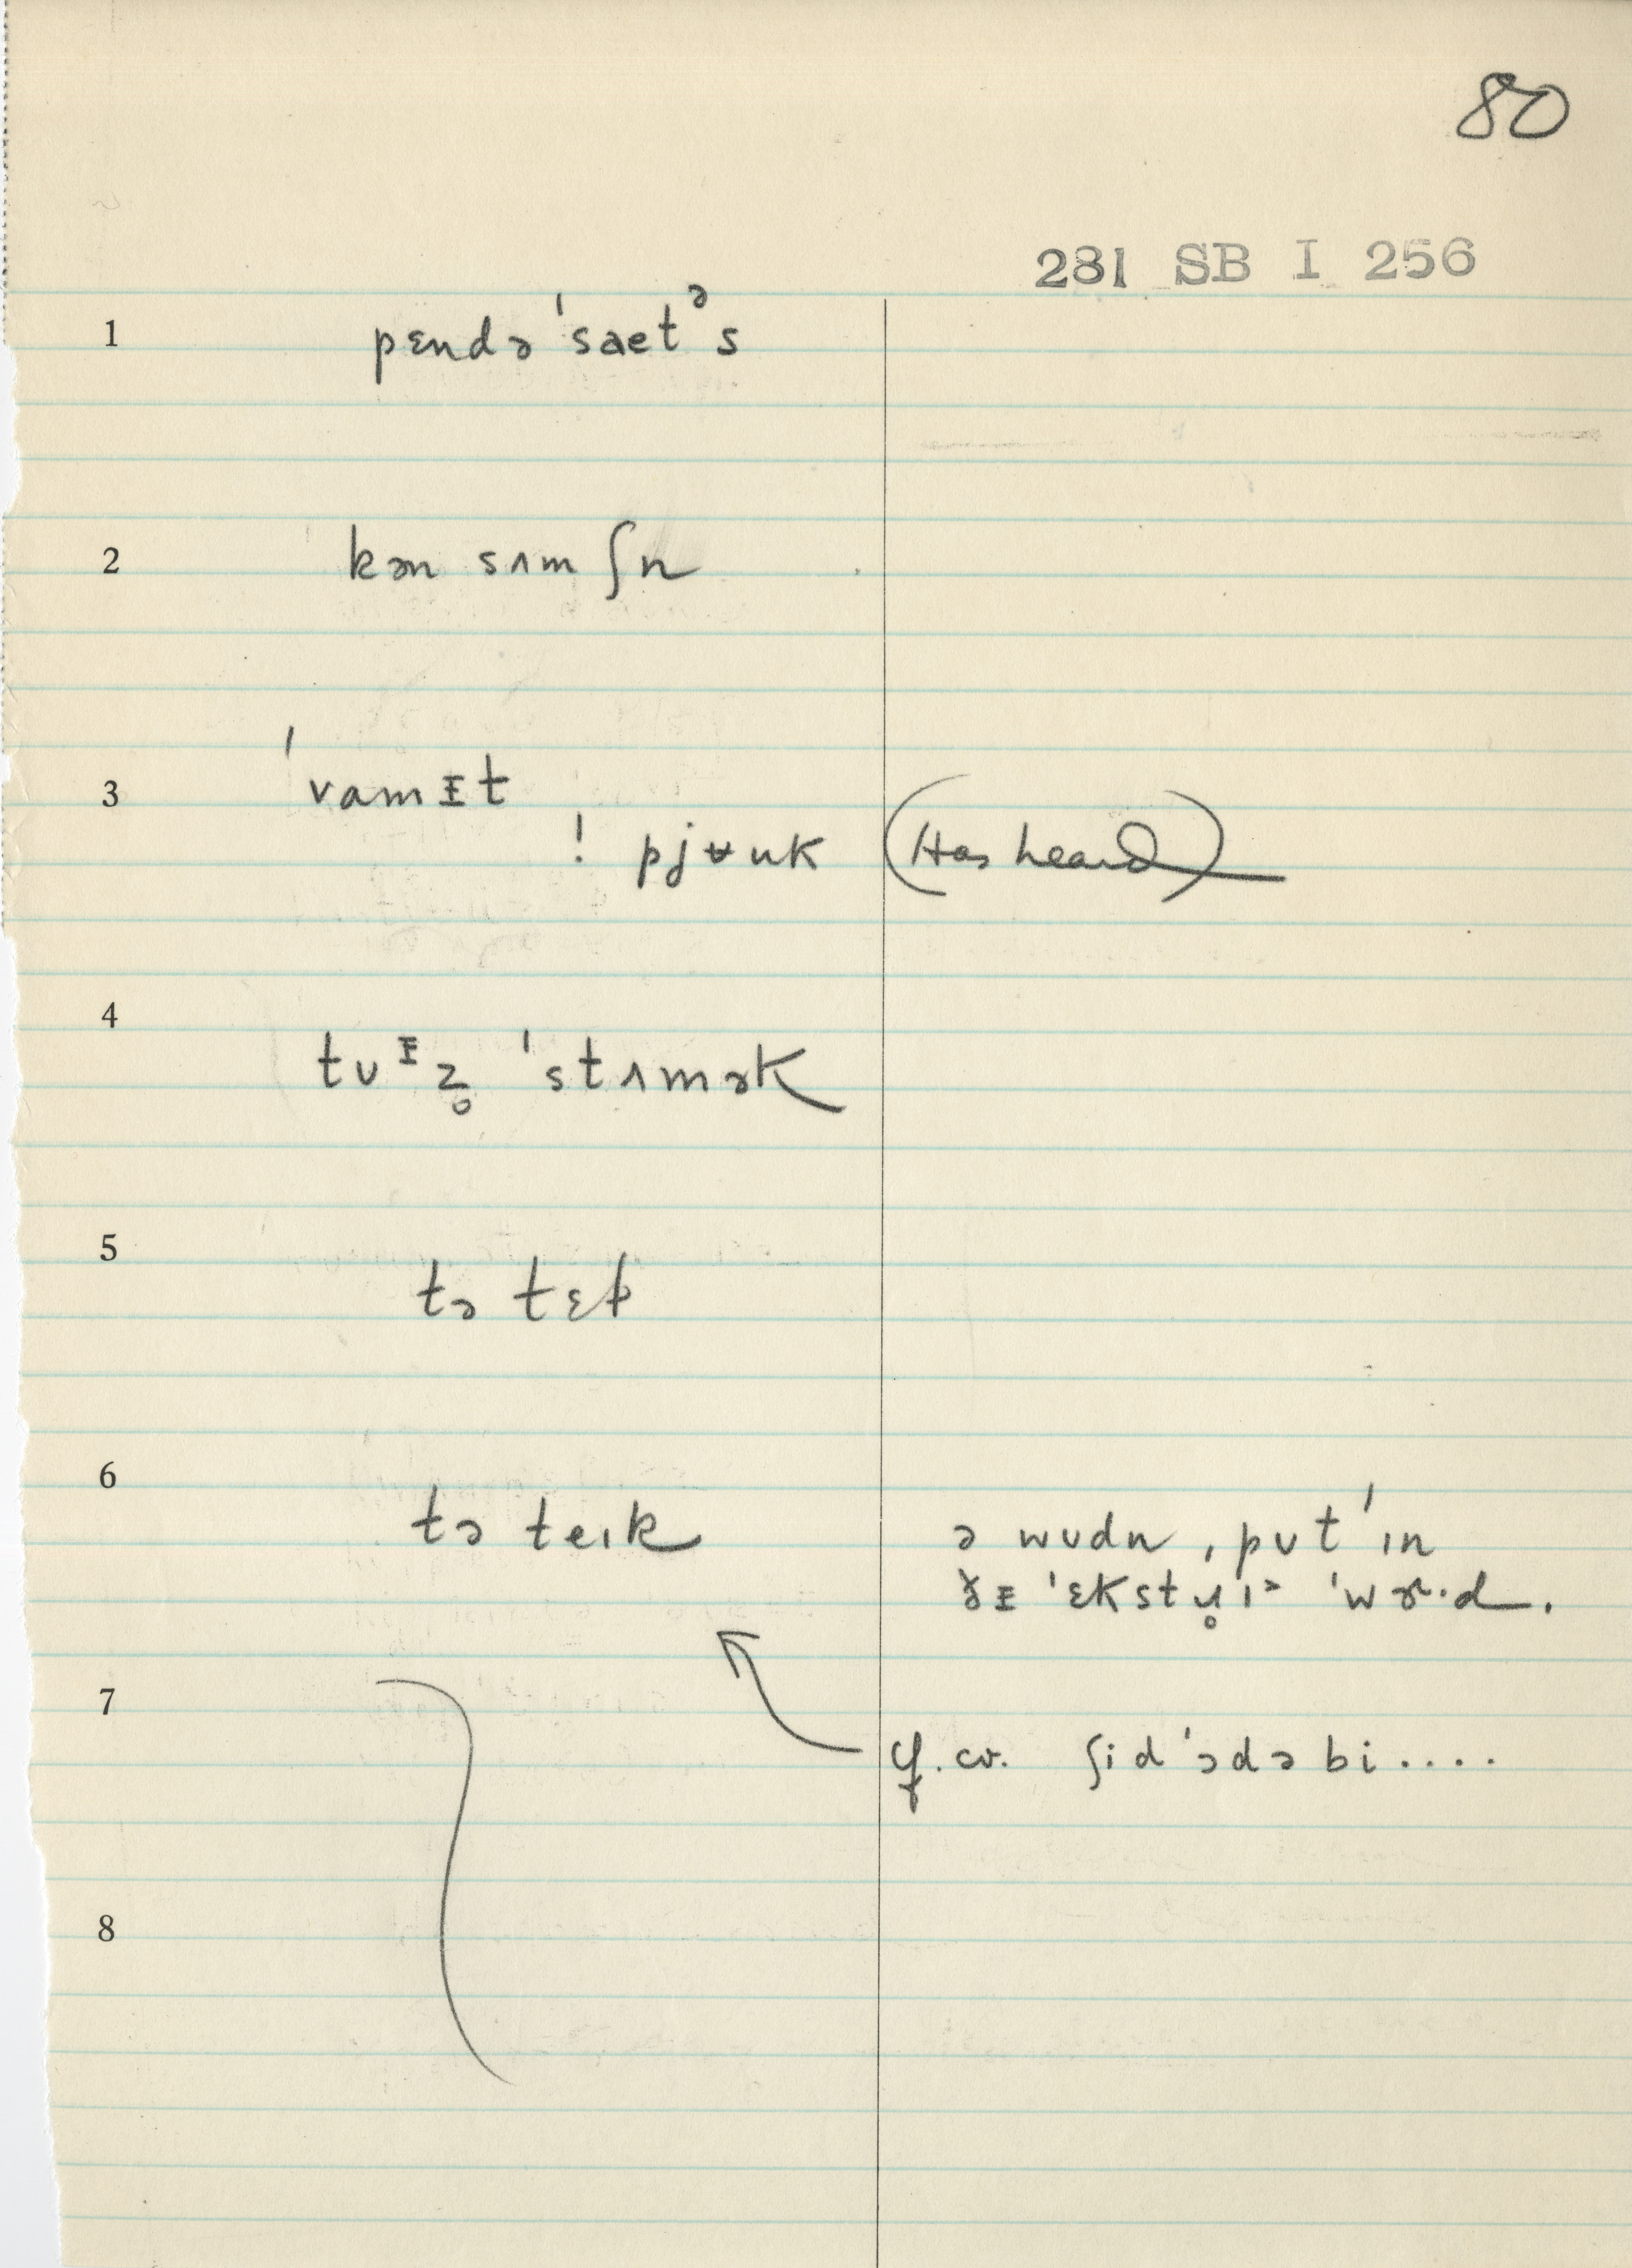 80
281 SB I 256
1 pɛndə ˈsaetᵊs
2 kən sʌm ʃn
3 ˈvamᵻt
! pjʉuk (Has heard)
4 tʊᵻz̥ ˈstʌmək
5 tə tɛƚ
6 tə teɪk ə wʊdn ˌpʊt ˈɪn
ðᵻ ˈɛkstɹ̥ɪ˃ ˈwɝ·d.
7
cf. cv. ʃid ˈɔdə bi ....
8